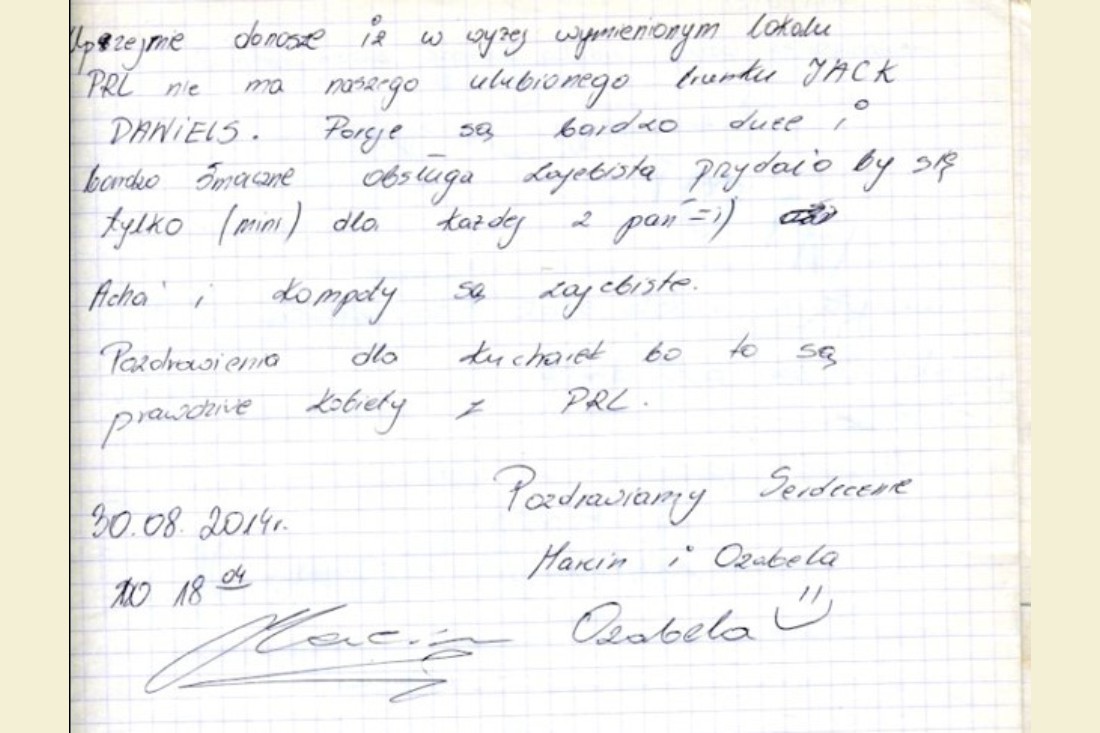 Uprzejmie donosze iż w wyżej wymienionym lokalu
PRL nie ma naszego ulubionego trunku JACK
DANIELS. Porcje są bardzo duże i
bardzo smaczne obsługa zajebista przydało by się
tylko (mini) dla każdej z pań =i)
Acha i kompoty są zajebiste.
Pozdrowienia dla kucharek bo to są
prawdziwe kobiety z PRL.
Pozdrawiamy Serdecznie
30.08.2014r.
Marcin i Ozabela
18 04
Marcin Ozabela